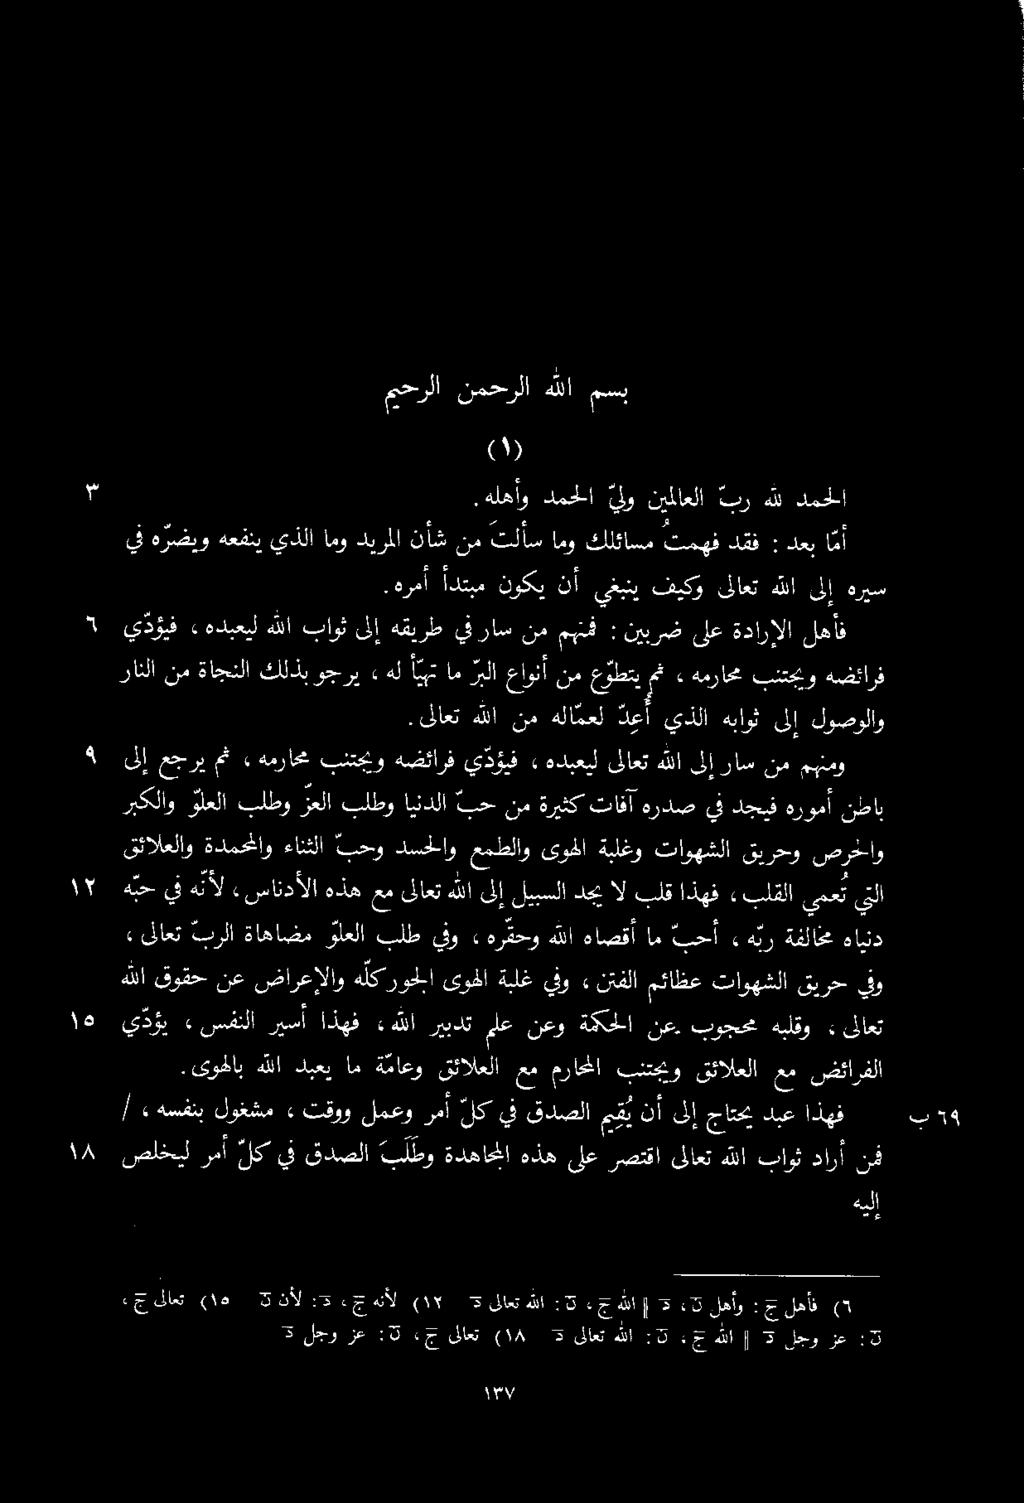 بسم الله الرحمن الرحيم
(١)
الحمد لله ربّ العالمين وليّ الحمد وأهله. ٣
أمّا بعد : فقد فهمتُ مسائلك وما سألتَ من شأن المريد وما الذي ينفعه ويضرّه في
سيره إلى الله تعالى وكيف ينبغي أن يكون مبتدأ أمره.
فأهل الإرادة على ضربين : فمنهم من سار في طريقه إلى ثواب الله ليعبده ، فيؤدّي ٦
فرائضه ويجتنب محارمه ، ثم يتطوّع من أنواع البرّ ما تهيّأ له ، يرجو بذلك النجاة من النار
والوصول إلى ثوابه الذي أُعِدّ لعمّاله من الله تعالى.
ومنهم من سار إلى الله تعالى ليعبده ، فيؤدّي فرائضه ويجتنب محارمه ، ثم يرجع إلى ٩
باطن أموره فيجد في صدره آفات كثيرة من حبّ الدنيا وطلب العزّ وطلب العلوّ والكبر
والحرص وحريق الشهوات وغلبة الهوى والطمع والحسد وحبّ الثناء والمحمدة والعلائق
التي تُعمي القلب ، فهذا قلب لا يجد السبيل إلى الله تعالى مع هذه الأدناس ، لأنّه في حبّه ١٢
دنياه مخالفة ربّه ، أحبّ ما أقصاه الله وحقّره ، وفي طلب العلوّ مضاهاة الربّ تعالى ،
وفي حريق الشهوات عظائم الفتن ، وفي غلبة الهوى الجور كلّه والإعراض عن حقوق الله
تعالى ، وقلبه محجوب عن الحكمة وعن علم تدبير الله ، فهذا أسير النفس ، يؤدّي ١٥
الفرائض مع العلائق ويجتنب المحارم مع العلائق وعامّة ما يعبد الله بالهوى.
٦٩ ب فهذا عبد يحتاج إلى أن يُقِيم الصدق في كلّ أمر وعمل ووقت ، مشغول بنفسه ، /
فمن أراد ثواب الله تعالى اقتصر على هذه المجاهدة وطَلَبَ الصدق في كلّ أمر ليخلص ١٨
إليه
٦) فأهل ج : وأهل ن ، د || الله ج ، ن : الله تعالى د ١٢) لأنه ج ، د : لأن ن ١٥) تعالى ج ،
ن : عز وجل د || الله ج ، ن : الله تعالى د ١٨) تعالى ج ، ن : عز وجل د
١٣٧